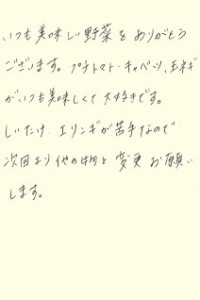 いつも美味しい野菜をありがとう
ございます。プチトマト・キャベツ、玉ネギ
がいつも美味しくて大好きです。
しいたけ、エリンギが苦手なので
次回より他の物と変更お願い
します。